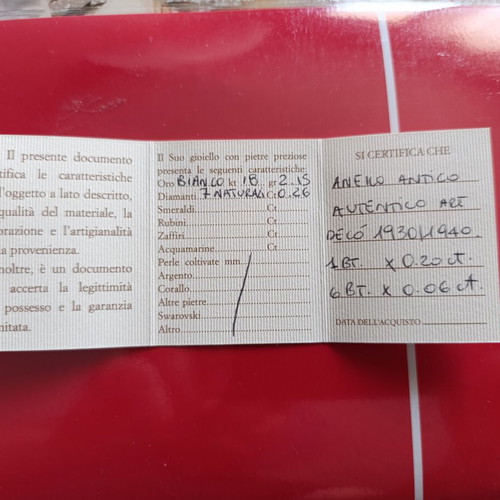 Il presente documento
tifica le caratteristiche
l'oggetto a lato descritto,
qualità del materiale, la
orazione e l'artigianalità
la provenienza.
noltre, è un documento
accerta la legittimità
possesso e la garanzia
mitata.
Il Suo gioiello con pietre preziose
presenta le seguenti caratteristiche:
Oro BIANCO kt 18 gr 2.15
Diamanti 7 NATURALI Ct 0.26
Smeraldi Ct
Rubini Ct
Zaffiri Ct
Acquamarine Ct
Perle coltivate mm
Argento
Corallo
Altre pietre
Swarovski
Altro
SI CERTIFICA CHE
ANELLO ANTICO
AUTENTICO ART
DECÓ 1930/1940.
1 BT. x 0.20 ct.
6 BT. x 0.06 ct.
DATA DELL'ACQUISTO